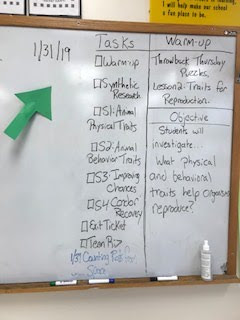 I will help make our school
a fun place to be.
1/31/19
Tasks
□ Warm-up
□ Synthetic
Research
□ S1: Animal
Physical Traits
□ S2: Animal
Behavior Traits
□ S3: Improving
Chances
□ S4: Condor
Recovery
□ Exit Ticket
□ Team
1/31 Counting
Warm-up
Throwback Thursday
Lesson 2: Traits for
Reproduction.
Objective
Students will
investigate...
What physical
and behavioral
traits help organisms
reproduce?